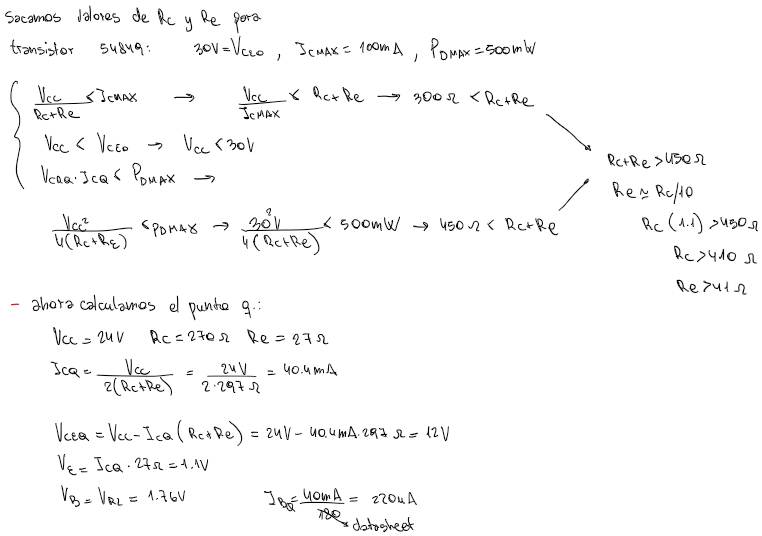 Sacamos valores de Rc y Re para
transistor 54849: 30V = VCEO , ICMAX = 100mA , PDMAX = 500mW
Vcc/(Rc+Re) < ICMAX → Vcc/ICMAX < Rc+Re → 300 Ω < Rc+Re
Vcc < VCEO → Vcc < 30V
VCEQ · ICQ < PDMAX →
Vcc²/4(Rc+RE) < PDMAX → 30²V/4(Rc+Re) < 500mW → 450 Ω < Rc+Re
Rc+Re > 450 Ω
Re ≃ Rc/10
Rc (1.1) > 450 Ω
Rc > 410 Ω
Re > 41 Ω
- ahora calculamos el punto q.:
Vcc = 24V Rc = 270 Ω Re = 27 Ω
ICQ = Vcc/2(Rc+Re) = 24V/2·297 Ω = 40.4mA
VCEQ = Vcc - ICQ (Rc+Re) = 24V - 40.4mA·297 Ω = 12V
VE = ICQ · 27 Ω = 1.1V
VB = VR2 = 1.76V IBQ = 40mA/180 = 220uA
datasheet